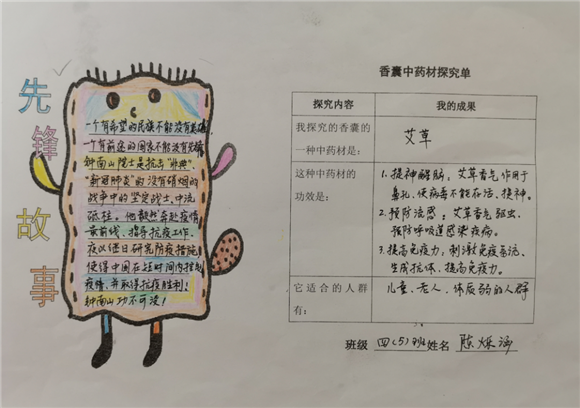 先锋故事
一个有希望的民族不能没有英雄
一个有前途的国家不能没有先锋
钟南山院士是抗击"非典"、
"新冠肺炎"的没有硝烟的
战争中的坚定战士、中流
砥柱。他毅然奔赴疫情
最前线、指导抗疫工作、
夜以继日研究防疫措施,
使得中国在短时间内控制
疫情,并取得抗疫胜利、
钟南山功不可没!
香囊中药材探究单
探究内容 我的成果
我探究的香囊的
一种中药材是:
艾草
这种中药材的
功效是:
1、提神醒脑:艾草香气作用于
鼻孔,使病毒不能存活、提神。
2、预防流感:艾草香气驱虫、
预防呼吸道感染疾病。
3、提高免疫力,刺激免疫系统、
生成抗体、提高免疫力。
它适合的人群
有:
儿童、老人、体质弱的人群
班级 四(5)班 姓名 陈烁涵